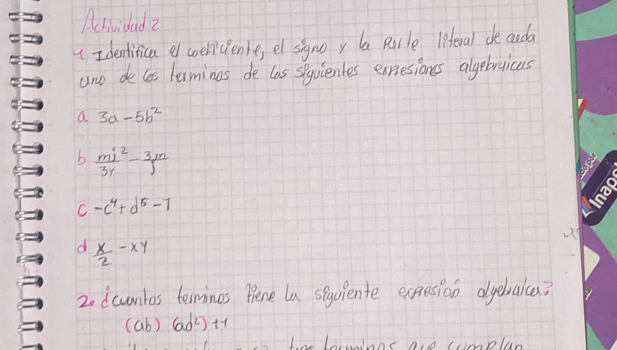 Actividad 2
1 Identifica el coeficiente, el signo y la Parte literal de cada
uno de los terminos de las siguientes expresiones algebraicas
a. 3a - 5b²
b mj²/3y - 3m/j
c -c⁴ + d⁵ - 7
d x/2 - xy
2. ¿cuantos terminos tiene la siguiente expresion algebraica?
(ab) (ad²) + 1
terminos que cumplan